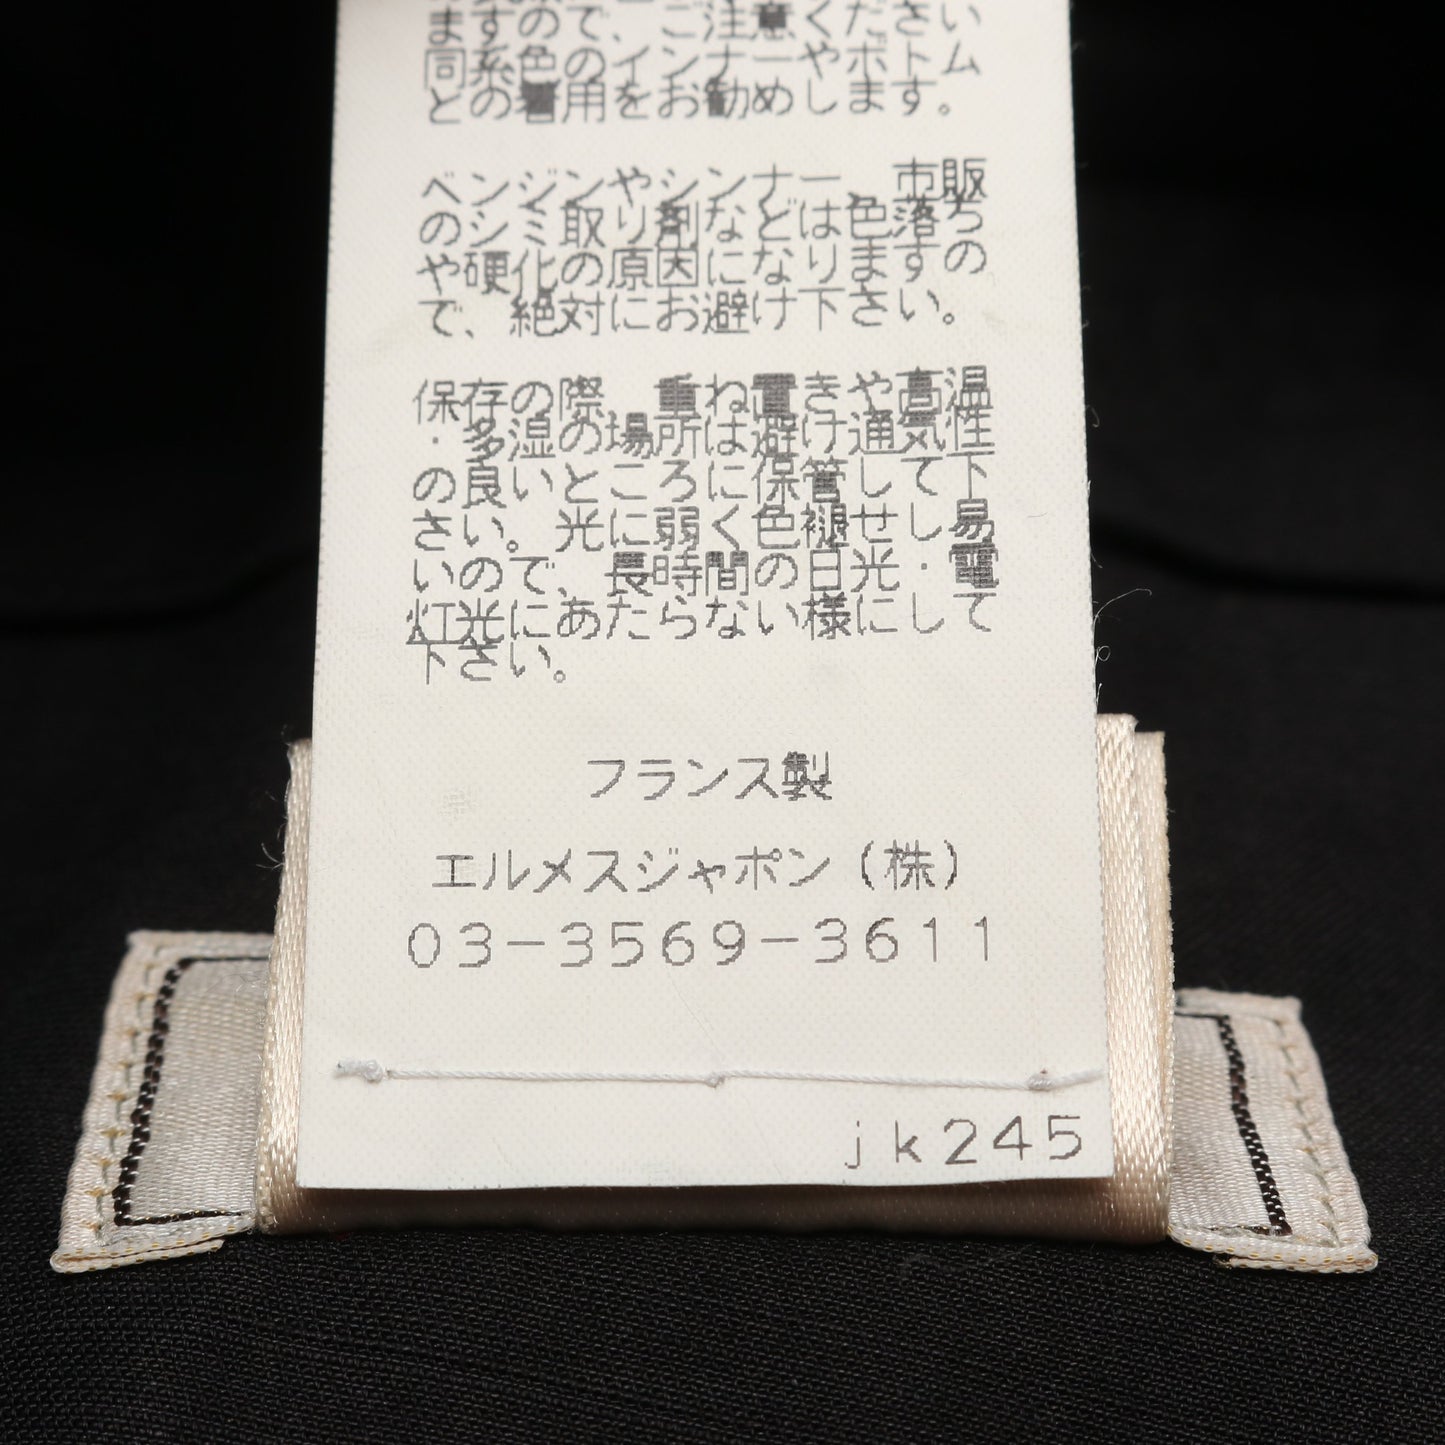 同系色のインナーやボトム
との着用をお勧めします。
ベンジンやシンナー、市販
のシミ取り剤などは、色落ち
や硬化の原因になりますの
で、絶対にお避け下さい。
保存の際、重ね置きや高温
・多湿の場所は避け通気性
の良いところに保管して下
さい。光に弱く色褪せし易
いので、長時間の日光・電
灯光にあたらない様にして
下さい。
フランス製
エルメスジャポン(株)
03-3569-3611
jk245